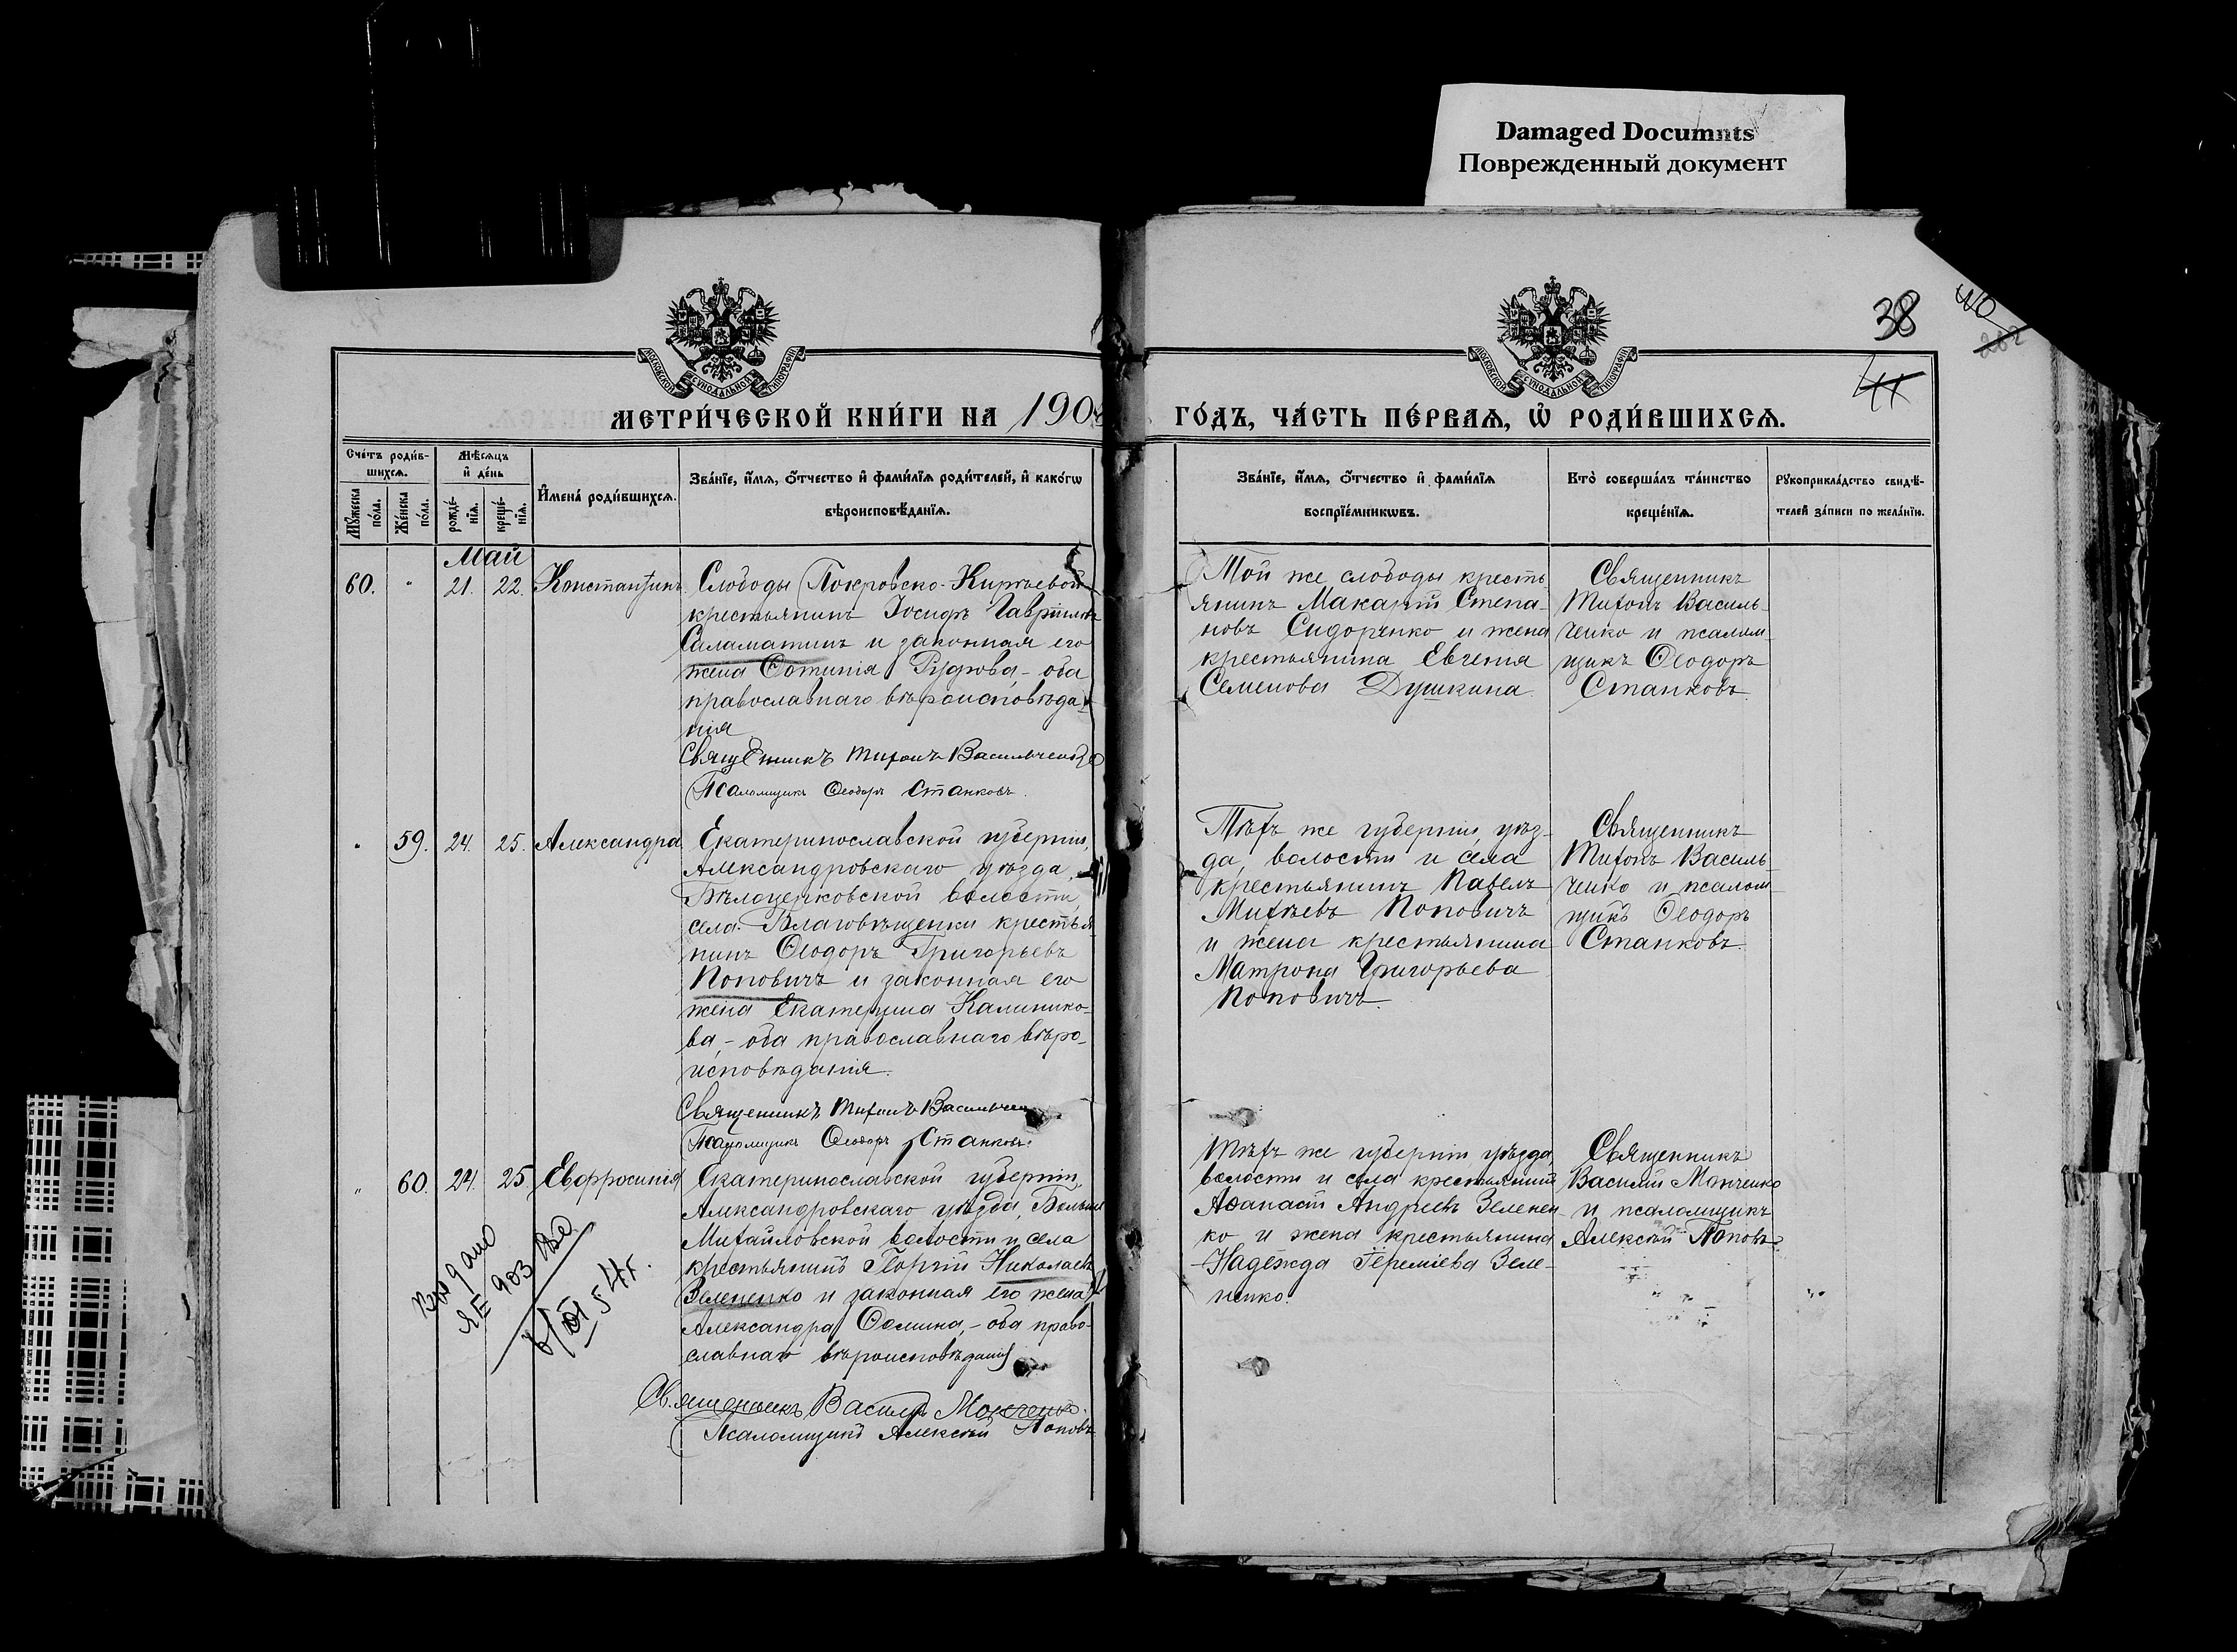 Damaged Documnts
Поврежденный документ
38
40
282
41
МОСКОВСКОЙ СѴНОДАЛЬНОЙ ТИПОГРАФІИ
МОСКОВСКОЙ СѴНОДАЛЬНОЙ ТИПОГРАФІИ
МЕТРИ́ЧЕСКОЙ КНИ́ГИ НА 190
ГО́ДЪ, ЧА́СТЬ ПЕ́РВАѦ, Ѽ РОДИ́ВШИХСѦ.
Сче́тъ роди́в-
шихсѧ.
Мѣ́сѧцъ
и҆ де́нь
Мꙋ́жеска по́ла.
Же́нска по́ла.
рожде́-нїѧ.
креще́-нїѧ.
И҆мена̀ роди́вшихсѧ.
Зва́нїе, и҆́мѧ, ѻ҆́тчество и҆ фами́лїѧ роди́телей, и҆ како́гѡ
вѣроисповѣ́данїѧ.
Зва́нїе, и҆́мѧ, ѻ҆́тчество и҆ фами́лїѧ
воспрїе́мникѡвъ.
Кто̀ соверша́лъ та́инство
креще́нїѧ.
Рꙋкоприкла́дство свидѣ́-
телей за́писи по жела́нїю.
Май
60. " 21. 22. Константинъ
Слободы Покровско-Киреевой
крестьянинъ Іосифъ Гавриловъ
Саламатинъ и законная его
жена Фотинія Руфова, – оба
православнаго вѣроисповѣда-
нія
Священникъ Тихонъ Васильченко
Псаломщикъ Ѳеодоръ Станковъ.
Той же слободы кресть
янинъ Макарій Степа-
новъ Сидоренко и жена
крестьянина Евгенія
Семенова Душкина
Священникъ
Тихонъ Василь-
ченко и псалом-
щикъ Ѳеодоръ
Станковъ.
" 59. 24. 25. Александра
Екатеринославской губерніи,
Александровскаго уѣзда,
Бѣлоцерковской волости,
села Благовѣщенки крестья-
нинъ Ѳеодоръ Григорьевъ
Поповичъ и законная его
жена Екатерина Калинико-
ва, – оба православнаго вѣро-
исповѣданія.
Священникъ Тихонъ Васильчен
Псаломщикъ Ѳеодоръ Станковъ.
Тѣхъ же губерніи, уѣз-
да, волости и села
крестьянинъ Павелъ
Михѣевъ Поповичъ
и жена крестьянина
Матрона Григорьева
Поповичъ.
Священникъ
Тихонъ Василь
ченко и псалом-
щикъ Ѳеодоръ
Станковъ.
" 60. 24. 25. Евфросинія
Екатеринославской губерніи,
Александровскаго уѣзда, Больше
Михайловской волости и села
крестьянинъ Георгій Николаевъ
Зелененко и законная его жена
Александра Ѳомина, – оба право-
славнаго вѣроисповѣданія
Священникъ Василій Манченко.
Псаломщикъ Алексѣй Поповъ
Тѣхъ же губерніи уѣзда,
волости и села крестьянинъ
Аѳанасій Андреевъ Зеленен-
ко и жена крестьянина
Надежда Іереміева Зеле-
ненко.
Священникъ
Василій Манченко
и псаломщикъ
Алексѣй Поповъ.
Выдано
54г.